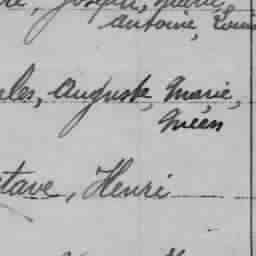 Joseph, Marie,
Antoine, Louis
les, Auguste, Marie,
Green
tave, Henri